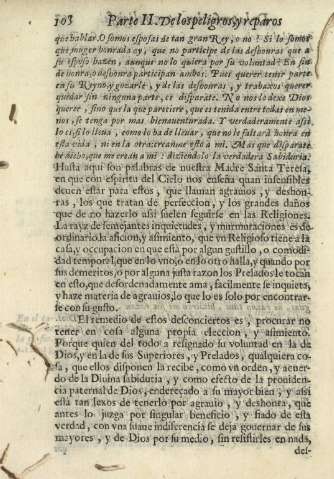 108 Parte II. De los peligros, y reparos
que hablar. O somos esposas de tan gran Rey, o no? Si lo somos
que muger honrada ay, que no participe de las desonras que a
su esposo hazen, aunque no lo quiera por su voluntad? En fin
de honra, o desonra participan ambos. Pues querer tener parte
en su Reyno, y gozarle, y de las desonras, y trabaxos querer
quedar sin ninguna parte, es disparate. N o nos lo dexe Dios
querer, sino que la que pareciere, que es tenida entre todas en me-
nos, se tenga por mas bienauenturada. Y verdaderamente assi
lo es, si lo lleua, como lo ha de lleuar, que no le faltará honra en
esta vida, ni en la otra: creanme esto a mi. Mas que disparate
he dicho, que me crean a mi: diziendolo la verdadera Sabiduria.
Hasta aqui son palabras de nuestra Madre Santa Teresa,
en que con espiritu del Cielo nos enseña quan insensibles
deuen estar para estos, que llaman agrauios, y deshon-
ras, los que tratan de perfeccion, y los grandes daños
que de no hazerlo assi suelen seguirse en las Religiones.
La rayz de semejantes inquietudes, y murmuraciones es de-
ordinario la aficion, y asimiento, que vn Religioso tiene a la
casa, y occupacion en que está por algun gustillo, o comodi-
dad temporal, que en lo vno, o en lo otro halla, y quando por
sus demeritos, o por alguna justa razon los Prelados le tocan
en esto, que desordenadamente ama, facilmente se inquieta,
y haze materia de agrauios, lo que lo es solo por encontrar-
se con su gusto.
El remedio de estos desconciertos es, procurar no
tener en cosa alguna propia eleccion, y asimiento.
Porque quien del todo a resignado su voluntad en la de
Dios, y en la de sus Superiores, y Prelados, qualquiera co-
sa, que ellos disponen la recibe, como vn orden, y acuer-
do de la Diuina sabiduria, y como efecto de la prouiden-
cia paternal de Dios, endereçado a su mayor bien, y assi
esta tan lexos de tenerlo por agrauio, y deshonra, que
antes lo juzga por singular beneficio, y fiado de esta
verdad, con vna suaue indiferencia se deja gouernar de sus
mayores, y de Dios por su medio, sin resistirles en nada,
des-